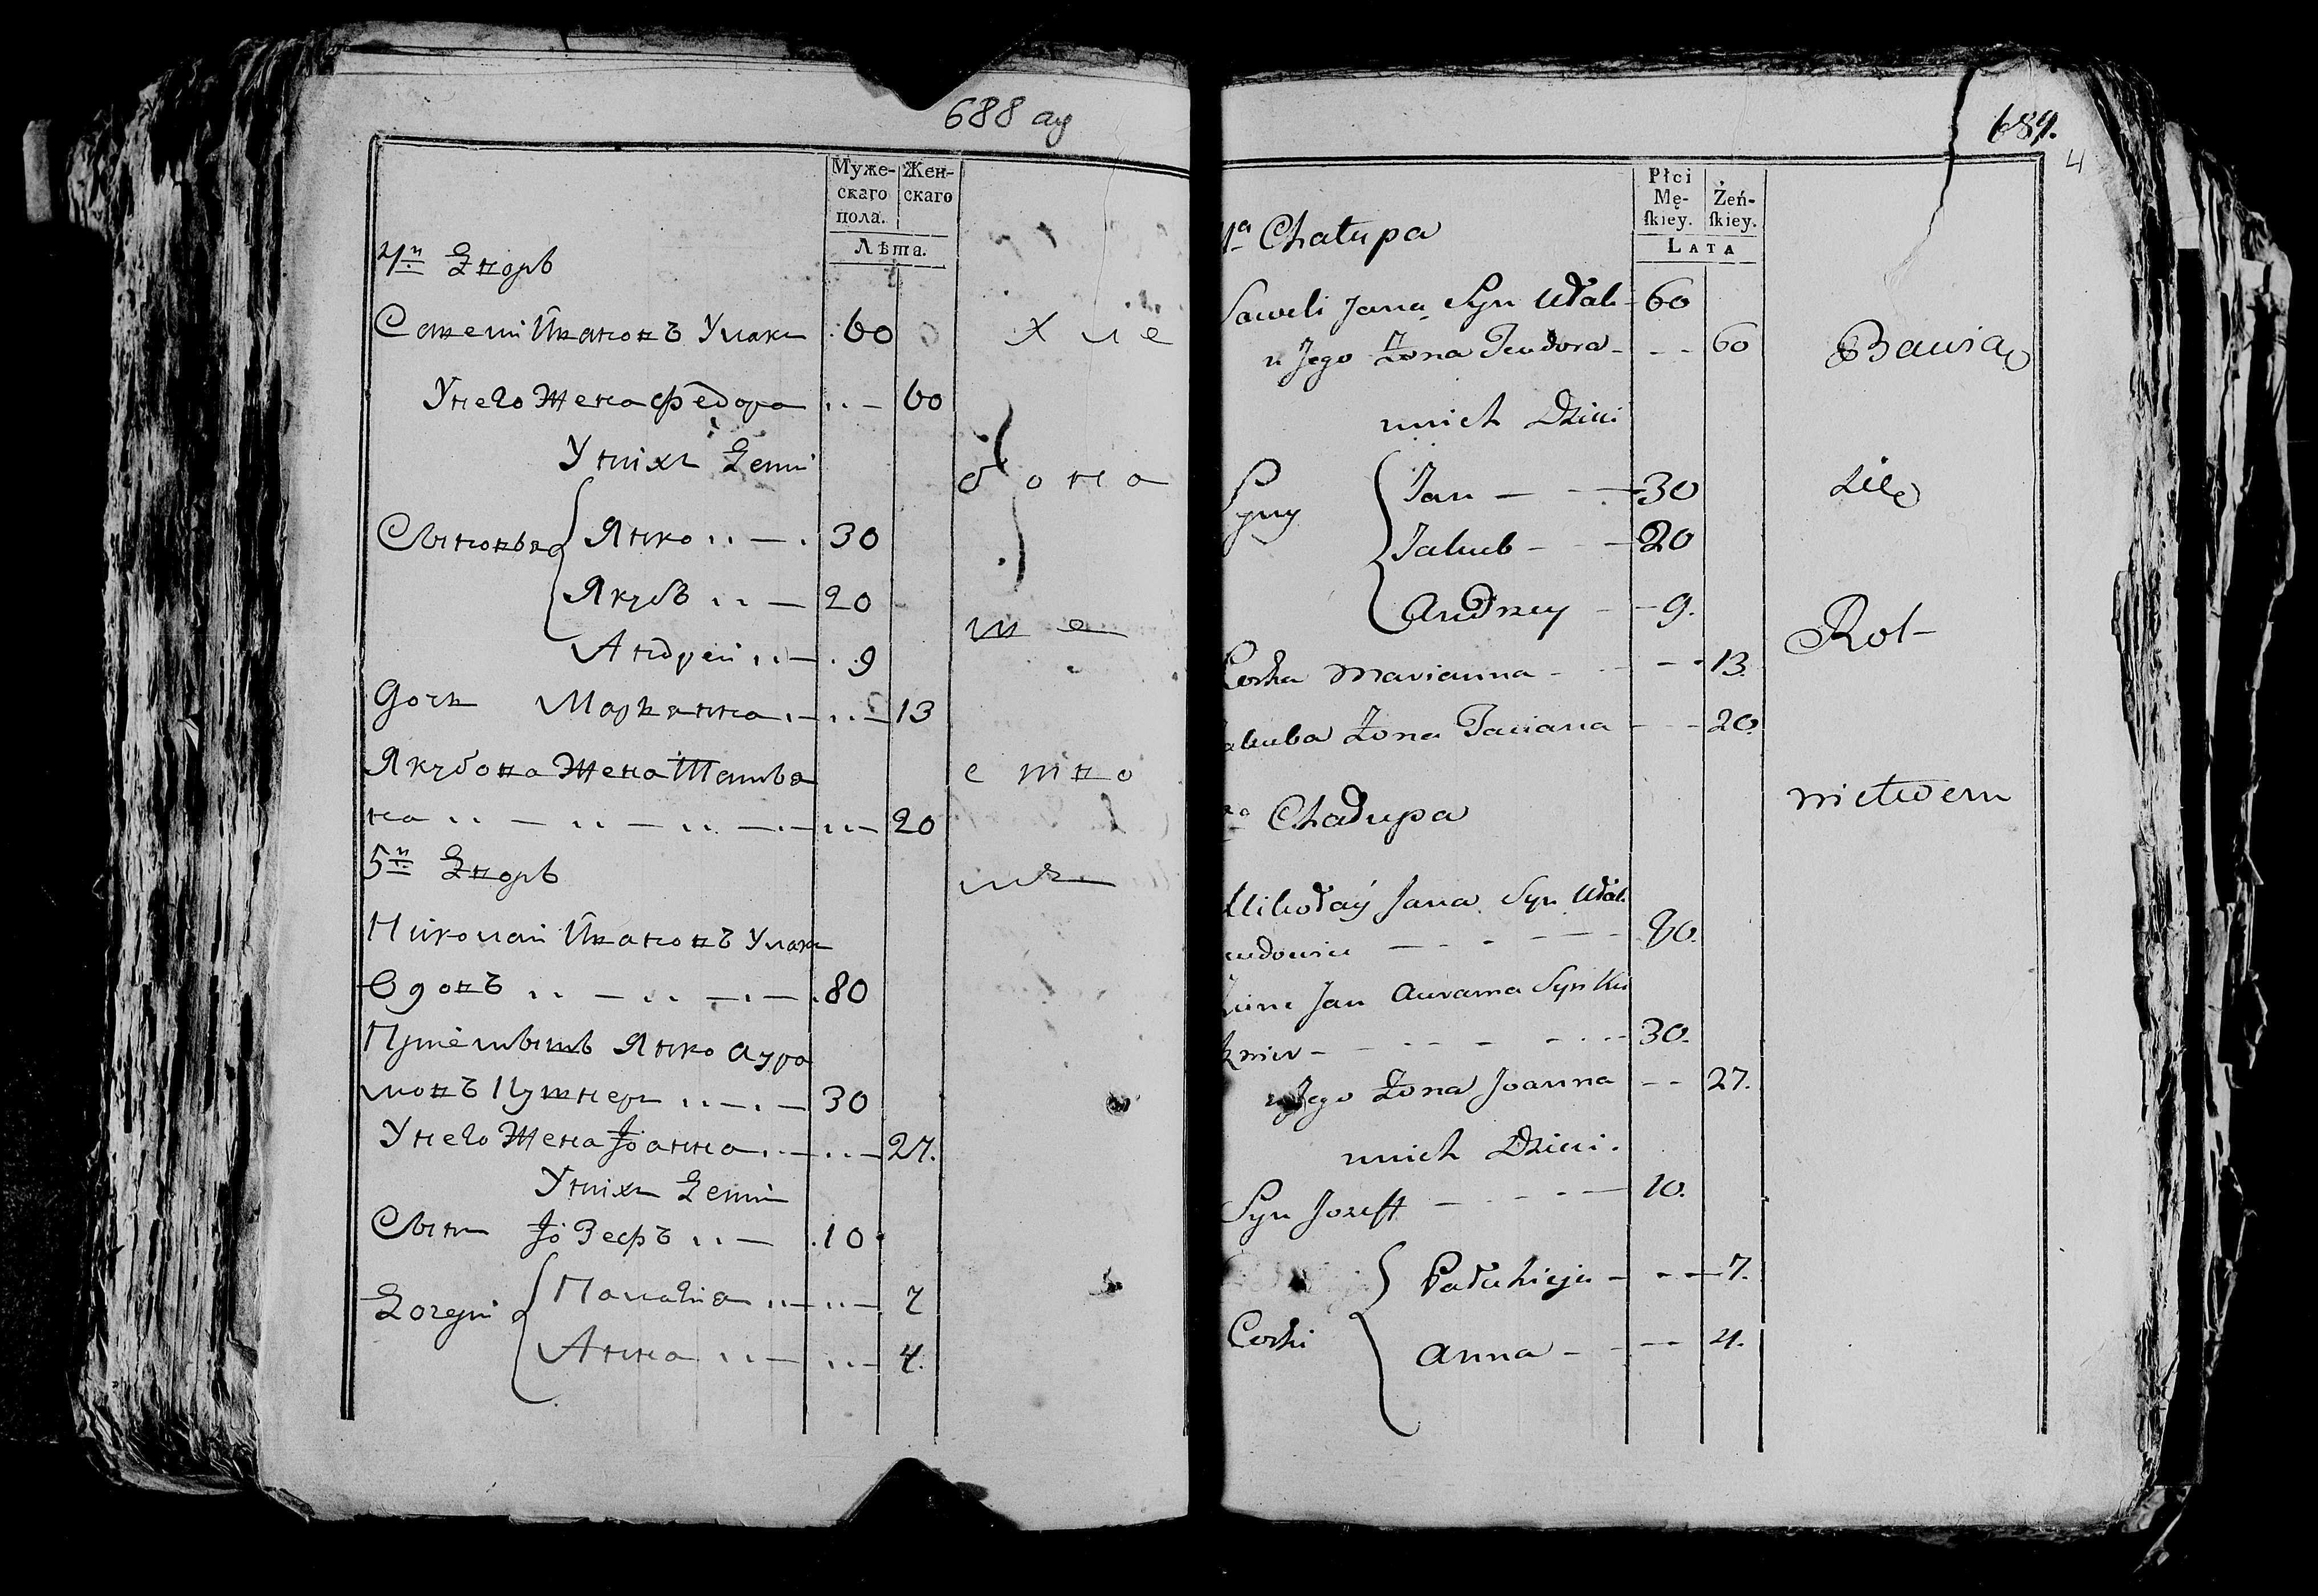 688 ау
Муже-
скаго
пола.
Жен-
скаго
Лѣта.
4й Дворъ
Савели Ивановъ Улан 60
У него Жена Федора 60
У нихъ Дети
Сыновья Янко 30
Якубъ 20
Андрей 9
Дочь Марьянна 13
Якубова Жена Татья
на 20
5й Дворъ
Николай Ивановъ Улан
Вдовъ 80
Янко Аура
мовъ 30
У него Жена Іоанна 27.
У нихъ Дети
Сынъ Іозефъ 10
Дочери Палагия 7
Анна 4.
Х л е
б о п а
ш е
с т в о
мъ
689.
4
Płci
Mę-
ſkiey.
Żeń-
ſkiey.
LATA
4a Chałupa
Saweli Jana Syn Ułał 60
u Jego Żona Teodora 60
u nich Dzieci
Syny Jan 30
Jakub 20
Andrzey 9.
Corka Marianna 13.
Jakuba Żona Taciana 20.
Chałupa
Mikołaÿ Jana Syn Ułał
wdowiec 80.
Jan Aurama Syn Ku
30.
u Jego Żona Joanna 27.
u nich Dzieci.
Syn Jozeff 10.
Corki Pałahieja 7.
Anna 4.
Bawią
się
Rol-
nictwem